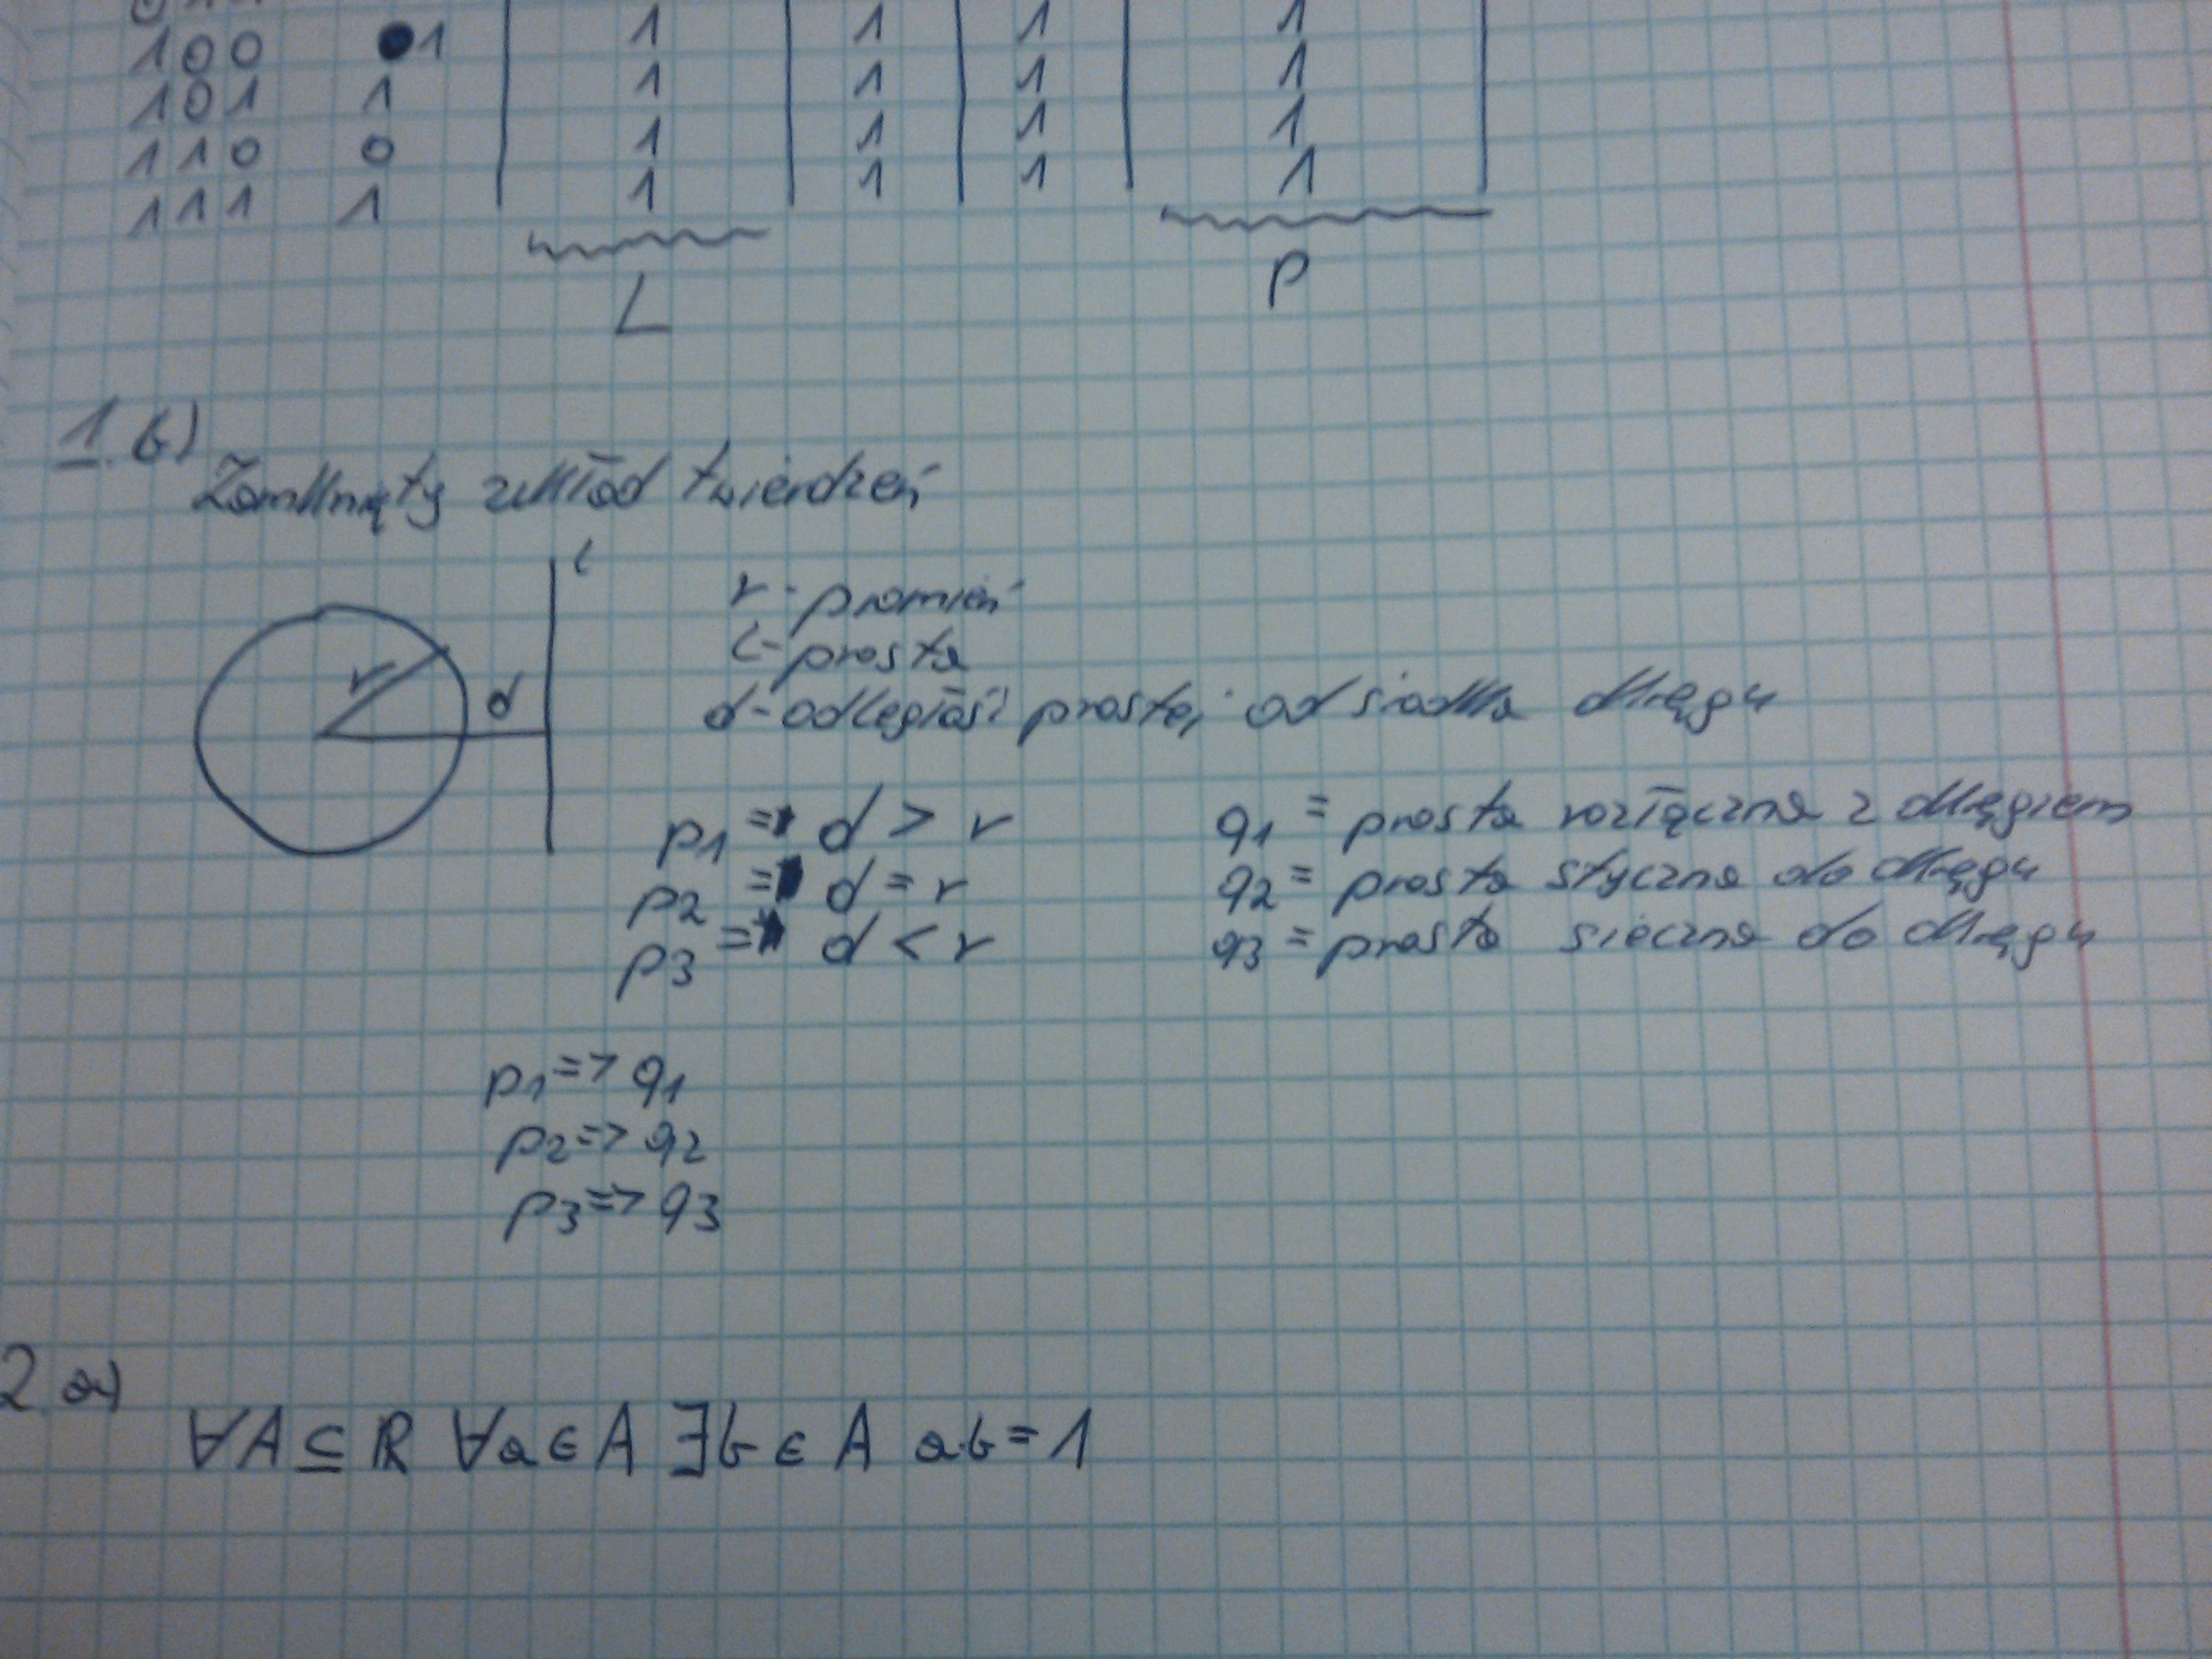 100 1 1 1 1 1
101 1 1 1 1 1
110 0 1 1 1 1
111 1 1 1 1 1
L P
1. b)
Zamknięty układ twierdzeń
l
r d
r - promień
l - prosta
d - odległość prostej od środka okręgu
p1 = d > r q1 = prosta rozłączna z okręgiem
p2 = d = r q2 = prosta styczna do okręgu
p3 = d < r q3 = prosta sieczna do okręgu
p1 => q1
p2 => q2
p3 => q3
2 a)
∀A⊆ℝ ∀a∈A ∃b∈A a·b=1